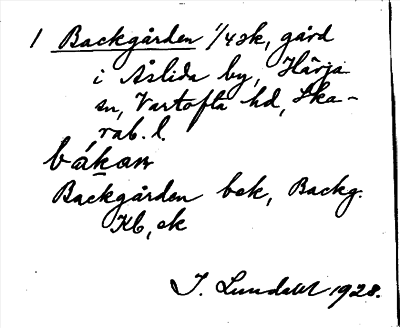 1 Backgården 1/4 sk, gård
i Åslida by, Härja
sn, Vartofta hd, Ska-
rab. l.
bákaɴ
Backgården bek, Backg.
Kb, ek
J. Lundahl 1928.